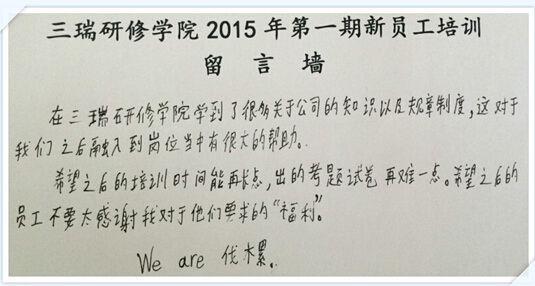 三瑞研修学院2015年第一期新员工培训
留言墙
在三瑞研修学院学到了很多关于公司的知识以及规章制度,这对于
我们之后融入到岗位当中有很大的帮助。
希望之后的培训时间能再长点,出的考题试卷再难一点。希望之后的
员工不要太感谢我对于他们要求的“福利”。
We are 伐木累.